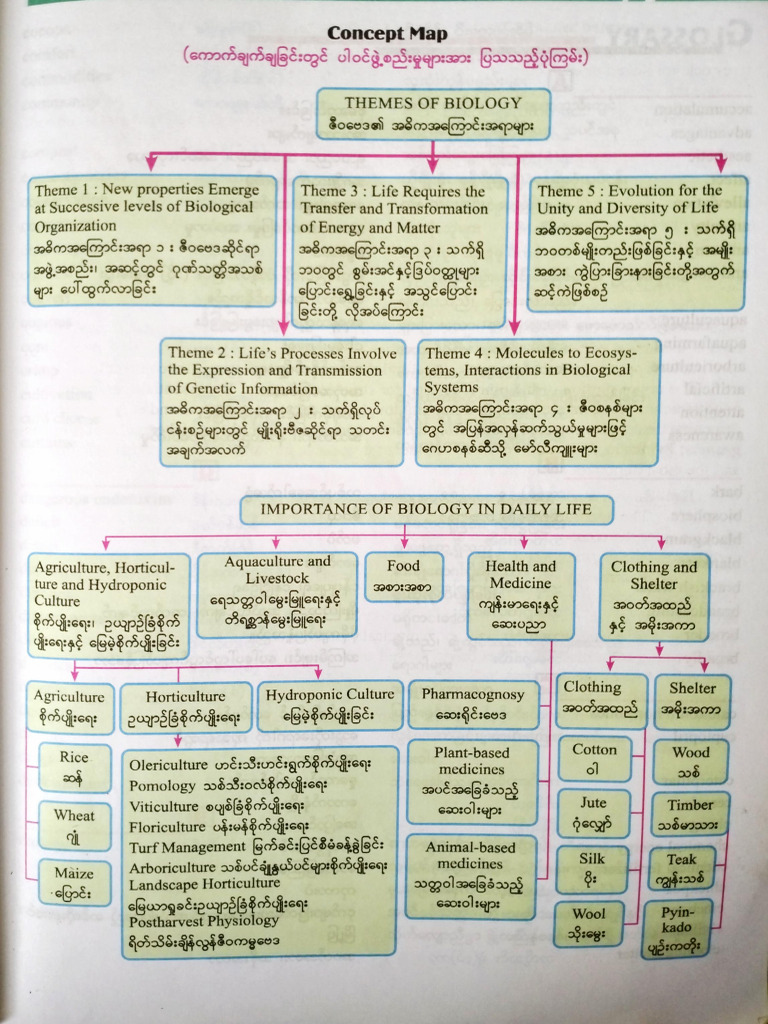 Concept Map
(ကောက်ချက်ချခြင်းတွင် ပါဝင်ဖွဲ့စည်းမှုများအား ပြသသည့်ပုံကြမ်း)
THEMES OF BIOLOGY
ဇီဝဗေဒ၏ အဓိကအကြောင်းအရာများ
Theme 1 : New properties Emerge
at Successive levels of Biological
Organization
အဓိကအကြောင်းအရာ ၁ : ဇီဝဗေဒဆိုင်ရာ
အဖွဲ့အစည်း၊ အဆင့်တွင် ဂုဏ်သတ္တိအသစ်
များ ပေါ်ထွက်လာခြင်း
Theme 3 : Life Requires the
Transfer and Transformation
of Energy and Matter
အဓိကအကြောင်းအရာ ၃ : သက်ရှိ
ဘဝတွင် စွမ်းအင်နှင့်ဒြပ်ဝတ္ထုများ
ပြောင်းရွှေ့ခြင်းနှင့် အသွင်ပြောင်း
ခြင်းတို့ လိုအပ်ကြောင်း
Theme 5 : Evolution for the
Unity and Diversity of Life
အဓိကအကြောင်းအရာ ၅ : သက်ရှိ
ဘဝတစ်မျိုးတည်းဖြစ်ခြင်းနှင့် အမျိုး
အစား ကွဲပြားခြားနားခြင်းတို့အတွက်
ဆင့်ကဲဖြစ်စဉ်
Theme 2 : Life's Processes Involve
the Expression and Transmission
of Genetic Information
အဓိကအကြောင်းအရာ ၂ : သက်ရှိလုပ်
ငန်းစဉ်များတွင် မျိုးရိုးဗီဇဆိုင်ရာ သတင်း
အချက်အလက်
Theme 4 : Molecules to Ecosys-
tems, Interactions in Biological
Systems
အဓိကအကြောင်းအရာ ၄ : ဇီဝစနစ်များ
တွင် အပြန်အလှန်ဆက်သွယ်မှုများဖြင့်
ဂေဟစနစ်ဆီသို့ မော်လီကျူးများ
IMPORTANCE OF BIOLOGY IN DAILY LIFE
Agriculture, Horticul-
ture and Hydroponic
Culture
စိုက်ပျိုးရေး၊ ဥယျာဉ်ခြံစိုက်
ပျိုးရေးနှင့် မြေမဲ့စိုက်ပျိုးခြင်း
Aquaculture and
Livestock
ရေသတ္တဝါမွေးမြူရေးနှင့်
တိရစ္ဆာန်မွေးမြူရေး
Food
အစားအစာ
Health and
Medicine
ကျန်းမာရေးနှင့်
ဆေးပညာ
Clothing and
Shelter
အဝတ်အထည်
နှင့် အမိုးအကာ
Agriculture
စိုက်ပျိုးရေး
Horticulture
ဥယျာဉ်ခြံစိုက်ပျိုးရေး
Hydroponic Culture
မြေမဲ့စိုက်ပျိုးခြင်း
Pharmacognosy
ဆေးရိုင်းဗေဒ
Clothing
အဝတ်အထည်
Shelter
အမိုးအကာ
Rice
ဆန်
Wheat
ဂျုံ
Maize
ပြောင်း
Olericulture ဟင်းသီးဟင်းရွက်စိုက်ပျိုးရေး
Pomology သစ်သီးဝလံစိုက်ပျိုးရေး
Viticulture စပျစ်ခြံစိုက်ပျိုးရေး
Floriculture ပန်းမန်စိုက်ပျိုးရေး
Turf Management မြက်ခင်းပြင်စီမံခန့်ခွဲခြင်း
Arboriculture သစ်ပင်ချုံနွယ်ပင်များစိုက်ပျိုးရေး
Landscape Horticulture
မြေယာရှုခင်းဥယျာဉ်ခြံစိုက်ပျိုးရေး
Postharvest Physiology
ရိတ်သိမ်းချိန်လွန်ဇီဝကမ္မဗေဒ
Plant-based
medicines
အပင်အခြေခံသည့်
ဆေးဝါးများ
Animal-based
medicines
သတ္တဝါအခြေခံသည့်
ဆေးဝါးများ
Cotton
ဝါ
Jute
ဂုံလျှော်
Silk
ပိုး
Wool
သိုးမွေး
Wood
သစ်
Timber
သစ်မာသား
Teak
ကျွန်းသစ်
Pyin-
kado
ပျဉ်းကတိုး